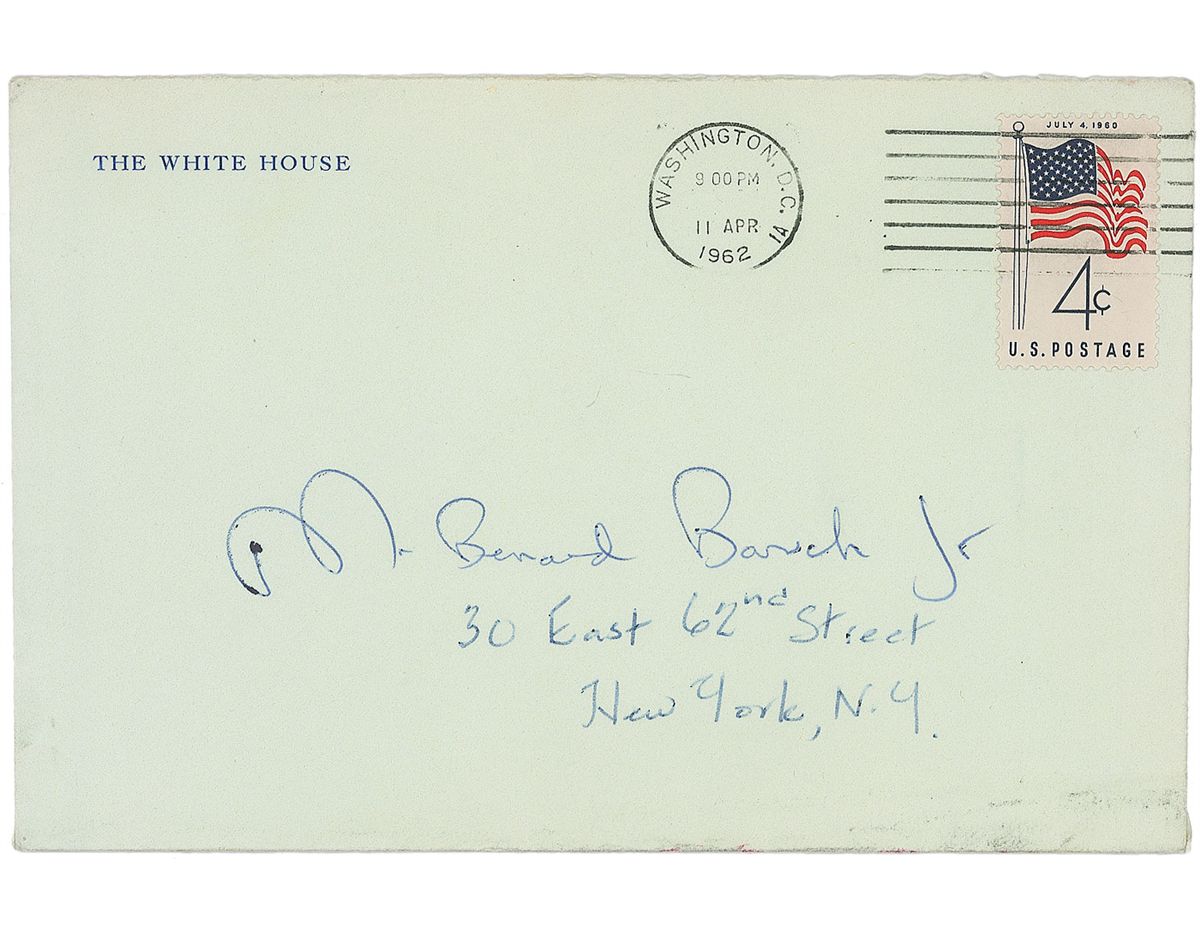 THE WHITE HOUSE
WASHINGTON, D.C. 1A
9 00 PM
11 APR
1962
JULY 4, 1960
4¢
U.S. POSTAGE
Mr. Bernard Baruch Jr
30 East 62nd Street
New York, N.Y.